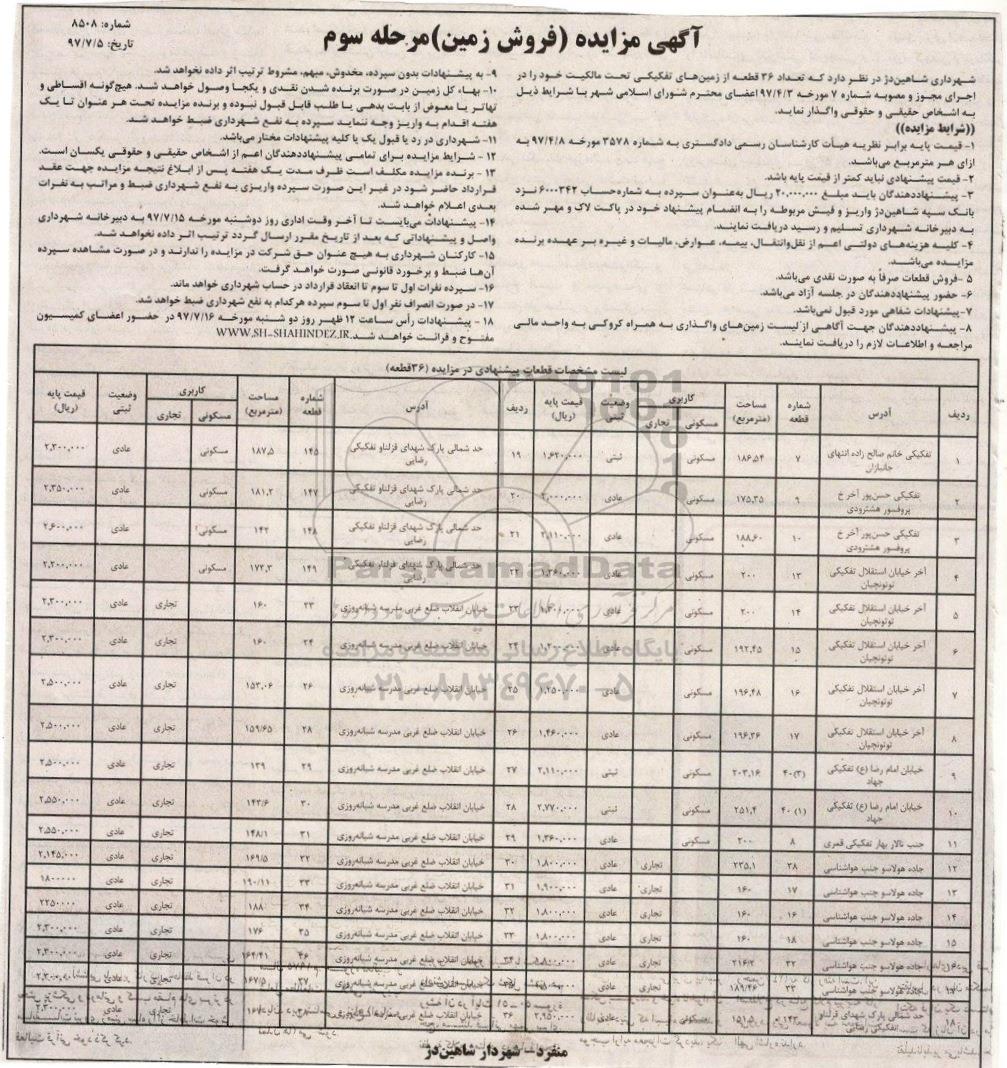 شماره: ۸۵۰۸
تاریخ: ۹۷/۷/۵
آگهی مزایده (فروش زمین)مرحله سوم
شهرداری شاهین‌دژ در نظر دارد که تعداد ۳۶ قطعه از زمین‌های تفکیکی تحت مالکیت خود را در
اجرای مجوز و مصوبه شماره ۷ مورخه ۹۷/۴/۳ اعضای محترم شورای اسلامی شهر با شرایط ذیل
به اشخاص حقیقی و حقوقی واگذار نماید.
((شرایط مزایده))
۱- قیمت پایه برابر نظریه هیأت کارشناسان رسمی دادگستری به شماره ۳۵۷۸ مورخه ۹۷/۴/۸ به
ازای هر مترمربع می‌باشد.
۲- قیمت پیشنهادی نباید کمتر از قیمت پایه باشد.
۳- پیشنهاددهندگان باید مبلغ ۲۰،۰۰۰،۰۰۰ ریال به‌عنوان سپرده به شماره‌حساب ۶۰۰۰۳۴۲ نزد
بانک سپه شاهین‌دژ واریز و فیش مربوطه را به انضمام پیشنهاد خود در پاکت لاک و مهر شده
به دبیرخانه شهرداری تسلیم و رسید دریافت نمایند.
۴- کلیه هزینه‌های دولتی اعم از نقل‌وانتقال، بیمه، عوارض، مالیات و غیره بر عهده برنده
مزایده می‌باشد.
۵ -فروش قطعات صرفاً به صورت نقدی می‌باشد.
۶- حضور پیشنهاددهندگان در جلسه آزاد می‌باشد.
۷-پیشنهادات شفاهی مورد قبول نمی‌باشد.
۸- پیشنهاددهندگان جهت آگاهی از لیست زمین‌های واگذاری به همراه کروکی به واحد مالی
مراجعه و اطلاعات لازم را دریافت نمایند.
۹- به پیشنهادات بدون سپرده، مخدوش، مبهم، مشروط ترتیب اثر داده نخواهد شد.
۱۰- بهاء کل زمین در صورت برنده شدن نقدی و یکجا وصول خواهد شد. هیچ‌گونه اقساطی و
تهاتر یا معوض از بابت بدهی یا طلب قابل قبول نبوده و برنده مزایده تحت هر عنوان تا یک
هفته اقدام به واریز وجه ننماید سپرده به نفع شهرداری ضبط خواهد شد.
۱۱- شهرداری در رد یا قبول یک یا کلیه پیشنهادات مختار می‌باشد.
۱۲ - شرایط مزایده برای تمامی پیشنهاددهندگان اعم از اشخاص حقیقی و حقوقی یکسان است.
۱۳ - برنده مزایده مکلف است ظرف مدت یک هفته پس از ابلاغ نتیجه مزایده جهت عقد
قرارداد حاضر شود در غیر این صورت سپرده واریزی به نفع شهرداری ضبط و مراتب به نفرات
بعدی اعلام خواهد شد.
۱۴- پیشنهادات می‌بایست تا آخر وقت اداری روز دوشنبه مورخه ۹۷/۷/۱۵ به دبیرخانه شهرداری
واصل و پیشنهاداتی که بعد از تاریخ مقرر ارسال گردد ترتیب اثر داده نخواهد شد.
۱۵- کارکنان شهرداری به هیچ عنوان حق شرکت در مزایده را ندارند و در صورت مشاهده سپرده
آن‌ها ضبط و برخورد قانونی صورت خواهد گرفت.
۱۶- سپرده نفرات اول تا سوم تا انعقاد قرارداد در حساب شهرداری خواهد ماند.
۱۷- در صورت انصراف نفر اول تا سوم سپرده هرکدام به نفع شهرداری ضبط خواهد شد.
۱۸ - پیشنهادات رأس ساعت ۱۲ ظهر روز دو شنبه مورخه ۹۷/۷/۱۶ در حضور اعضای کمیسیون
مفتوح و قرائت خواهد شد.WWW.SH-SHAHINDEZ.IR
لیست مشخصات قطعات پیشنهادی در مزایده (۳۶قطعه)
ردیف آدرس شماره قطعه مساحت (مترمربع) کاربری مسکونی تجاری وضعیت ثبتی قیمت پایه (ریال) ردیف آدرس شماره قطعه مساحت (مترمربع) کاربری مسکونی تجاری وضعیت ثبتی قیمت پایه (ریال)
۱ تفکیکی خانم صالح زاده انتهای جانبازان ۷ ۱۸۶،۵۴ مسکونی ثبتی ۱،۶۲۰،۰۰۰ ۱۹ حد شمالی پارک شهدای قزلناو تفکیکی رضایی ۱۴۵ ۱۸۷،۵ مسکونی عادی ۲،۳۰۰،۰۰۰
۲ تفکیکی حسن‌پور آخر خ پروفسور هشترودی ۹ ۱۷۵،۳۵ مسکونی عادی ۲،۰۰۰،۰۰۰ ۲۰ حد شمالی پارک شهدای قزلناو تفکیکی رضایی ۱۴۷ ۱۸۱،۲ مسکونی عادی ۲،۳۵۰،۰۰۰
۳ تفکیکی حسن‌پور آخر خ پروفسور هشترودی ۱۰ ۱۸۸،۶۰ مسکونی عادی ۲،۱۱۰،۰۰۰ ۲۱ حد شمالی پارک شهدای قزلناو تفکیکی رضایی ۱۴۸ ۱۴۲ مسکونی عادی ۲،۶۰۰،۰۰۰
۴ آخر خیابان استقلال تفکیکی توتونچیان ۱۳ ۲۰۰ مسکونی عادی ۱،۳۶۰،۰۰۰ ۲۲ حد شمالی پارک شهدای قزلناو تفکیکی رضایی ۱۴۹ ۱۷۳،۳ مسکونی عادی ۲،۲۰۰،۰۰۰
۵ آخر خیابان استقلال تفکیکی توتونچیان ۱۴ ۲۰۰ مسکونی عادی ۲۳ خیابان انقلاب ضلع غربی مدرسه شبانه‌روزی ۲۳ ۱۶۰ تجاری عادی ۲،۳۰۰،۰۰۰
۶ آخر خیابان استقلال تفکیکی توتونچیان ۱۵ ۱۹۲،۴۵ مسکونی عادی ۱،۲۰۰،۰۰۰ ۲۴ خیابان انقلاب ضلع غربی مدرسه شبانه‌روزی ۲۴ ۱۶۰ تجاری عادی ۲،۳۰۰،۰۰۰
۷ آخر خیابان استقلال تفکیکی توتونچیان ۱۶ ۱۹۶،۴۸ مسکونی عادی ۱،۲۵۰،۰۰۰ ۲۵ خیابان انقلاب ضلع غربی مدرسه شبانه‌روزی ۲۶ ۱۵۳،۰۶ تجاری عادی ۲،۵۰۰،۰۰۰
۸ آخر خیابان استقلال تفکیکی توتونچیان ۱۷ ۱۹۶،۳۶ مسکونی عادی ۱،۴۶۰،۰۰۰ ۲۶ خیابان انقلاب ضلع غربی مدرسه شبانه‌روزی ۲۸ ۱۵۹/۶۵ تجاری عادی ۲،۵۰۰،۰۰۰
۹ خیابان امام رضا (ع) تفکیکی جهاد ۴۰(۳) ۲۰۳،۱۶ مسکونی ثبتی ۲،۱۱۰،۰۰۰ ۲۷ خیابان انقلاب ضلع غربی مدرسه شبانه‌روزی ۲۹ ۱۳۹ تجاری عادی ۲،۵۰۰،۰۰۰
۱۰ خیابان امام رضا (ع) تفکیکی جهاد ۴۰ (۱) ۲۵۱،۴ مسکونی ثبتی ۲،۷۷۰،۰۰۰ ۲۸ خیابان انقلاب ضلع غربی مدرسه شبانه‌روزی ۳۰ ۱۴۳/۶ تجاری عادی ۲،۵۵۰،۰۰۰
۱۱ جنب تالار بهار تفکیکی قمری ۸ ۲۰۰ مسکونی عادی ۱،۳۶۰،۰۰۰ ۲۹ خیابان انقلاب ضلع غربی مدرسه شبانه‌روزی ۳۱ ۱۴۸/۱ تجاری عادی ۲،۵۵۰،۰۰۰
۱۲ جاده هولاسو جنب هواشناسی ۳۸ ۲۳۵،۱ تجاری عادی ۱،۸۰۰،۰۰۰ ۳۰ خیابان انقلاب ضلع غربی مدرسه شبانه‌روزی ۳۲ ۱۶۹/۵ تجاری عادی ۲،۱۴۵،۰۰۰
۱۳ جاده هولاسو جنب هواشناسی ۱۷ ۱۶۰ تجاری عادی ۱،۹۰۰،۰۰۰ ۳۱ خیابان انقلاب ضلع غربی مدرسه شبانه‌روزی ۳۳ ۱۹۰/۱۱ تجاری عادی ۱۸۰۰۰۰۰
۱۴ جاده هولاسو جنب هواشناسی ۱۶ ۱۶۰ تجاری عادی ۱،۸۰۰،۰۰۰ ۳۲ خیابان انقلاب ضلع غربی مدرسه شبانه‌روزی ۳۴ ۱۸۸ تجاری عادی ۲۲۵۰۰۰۰
۱۵ جاده هولاسو جنب هواشناسی ۱۸ ۱۶۰ تجاری عادی ۱،۸۰۰،۰۰۰ ۳۳ خیابان انقلاب ضلع غربی مدرسه شبانه‌روزی ۳۵ ۱۷۶ تجاری عادی ۲،۳۰۰،۰۰۰
جاده هولاسو جنب هواشناسی ۳۲ ۲۱۶/۲ تجاری عادی ۳۴ ۳۶ ۱۶۴/۴۱ تجاری عادی ۲،۳۰۰،۰۰۰
جاده هولاسو جنب هواشناسی ۳۳ ۱۸۹/۴۶ ۳۷ ۱۶۷/۵
حد شمالی پارک شهدای قزلناو تفکیکی رضایی ۱۴۳ ۱۵۱،۵ مسکونی عادی ۲،۹۵۰،۰۰۰ ۳۶
منفرد - شهردار شاهین‌دژ
ParsNamadData
پایگاه اطلاع رسانی مناقصه و مزایده
۰۲۱-۸۸۳۴۹۶۷۰-۵